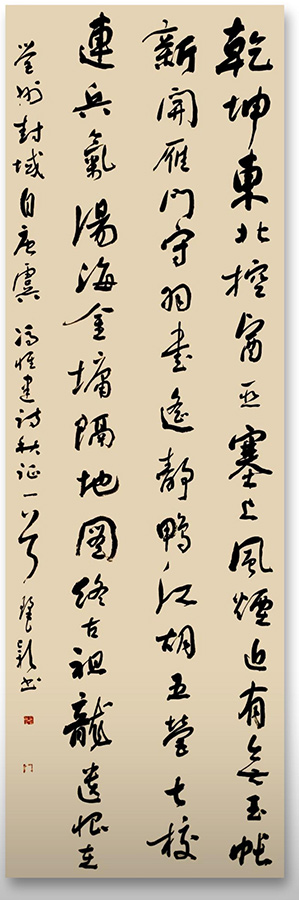 乾坤東北控窗亞塞上風煙近有無玉帳
新開雁門守羽書遙靜鴨江胡五營七校
連兵氣湯海金墉隔地圖終古祖龍遺恨在
營州封域自唐虞 馮惟健詩秋征一首 書